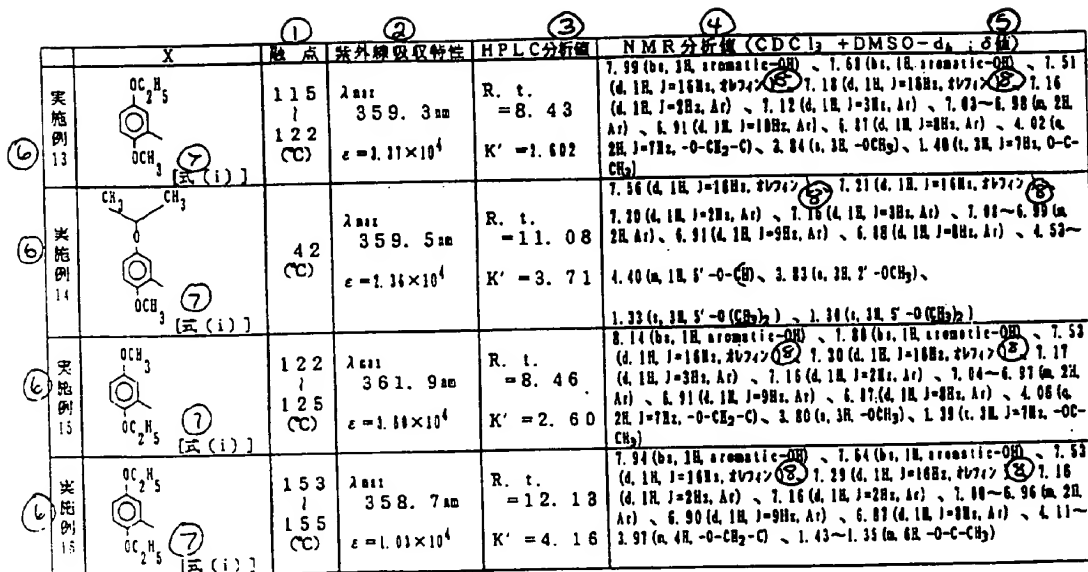 ① ② ③ ④ ⑤
X 融点 紫外線吸収特性 HPLC分析値 NMR分析値 (CDCl₃ +DMSO-d₆ ; δ値)
⑥ 実施例13
OC₂H₅
OCH₃ ⑦
[式(i)]
115
~
122
(℃)
λmax
359.3nm
R. t.
=8.43
K' =2.602
7.99(bs, 1H, aromatic-OH) 、7.68(bs, 1H, aromatic-OH) 、7.51
(d, 1H, J=16Hz, オレフィン ⑧ 、7.18(d, 1H, J=16Hz, オレフィン ⑧ 、7.16
(d, 1H, J=2Hz, Ar) 、7.12(d, 1H, J=3Hz, Ar) 、7.03~6.98(m, 2H,
Ar) 、6.91(d, 1H, J=10Hz, Ar)、6.87(d, 1H, J=8Hz, Ar) 、4.02(q,
2H, J=7Hz, -O-CH₂-C)、3.84(s, 3H, -OCH₃)、1.40(t, 3H, J=7Hz, O-C-
CH₃)
⑥ 実施例14
CH₃ CH₃
O
OCH₃ ⑦
[式(i)]
42
(℃)
λmax
359.5nm
ε=2.36×10⁴
R. t.
=11.08
K' =3.71
7.56(d, 1H, J=16Hz, オレフィン ⑧ 、7.21(d, 1H, J=16Hz, オレフィン ⑧
7.20(d, 1H, J=2Hz, Ar) 、7.16(d, 1H, J=3Hz, Ar) 、7.08~6.99(m,
2H, Ar)、6.91(d, 1H, J=9Hz, Ar) 、6.88(d, 1H, J=8Hz, Ar) 、4.53~
4.40(m, 1H, 5' -O-CH)、3.83(s, 3H, 2' -OCH₃)、
1.33(s, 3H, 5' -O(CH₃)₂) 、1.30(s, 3H, 5' -O(CH₃)₂)
⑥ 実施例15
OCH₃
OC₂H₅ ⑦
[式(i)]
122
~
125
(℃)
λmax
361.9nm
R. t.
=8.46
K' =2.60
8.14(bs, 1H, aromatic-OH) 、7.80(bs, 1H, aromatic-OH) 、7.53
(d, 1H, J=16Hz, オレフィン ⑧ 、7.30(d, 1H, J=16Hz, オレフィン ⑧ 、7.17
(d, 1H, J=3Hz, Ar) 、7.16(d, 1H, J=2Hz, Ar) 、7.04~6.97(m, 2H,
Ar) 、6.91(d, 1H, J=9Hz, Ar) 、6.87(d, 1H, J=8Hz, Ar) 、4.06(q,
2H, J=7Hz, -O-CH₂-C)、3.80(s, 3H, -OCH₃)、1.39(t, 3H, J=7Hz, -OC-
CH₃)
⑥ 実施例16
OC₂H₅
OC₂H₅ ⑦
[式(i)]
153
~
155
(℃)
λmax
358.7nm
ε=1.03×10⁴
R. t.
=12.13
K' =4.16
7.94(bs, 1H, aromatic-OH) 、7.64(bs, 1H, aromatic-OH) 、7.53
(d, 1H, J=16Hz, オレフィン ⑧ 、7.29(d, 1H, J=16Hz, オレフィン ⑧ 、7.16
(d, 1H, J=2Hz, Ar) 、7.16(d, 1H, J=2Hz, Ar) 、7.00~6.96(m, 2H,
Ar) 、6.90(d, 1H, J=9Hz, Ar) 、6.87(d, 1H, J=8Hz, Ar) 、4.11~
3.97(m, 4H, -O-CH₂-C) 、1.43~1.35(m, 6H, -O-C-CH₃)